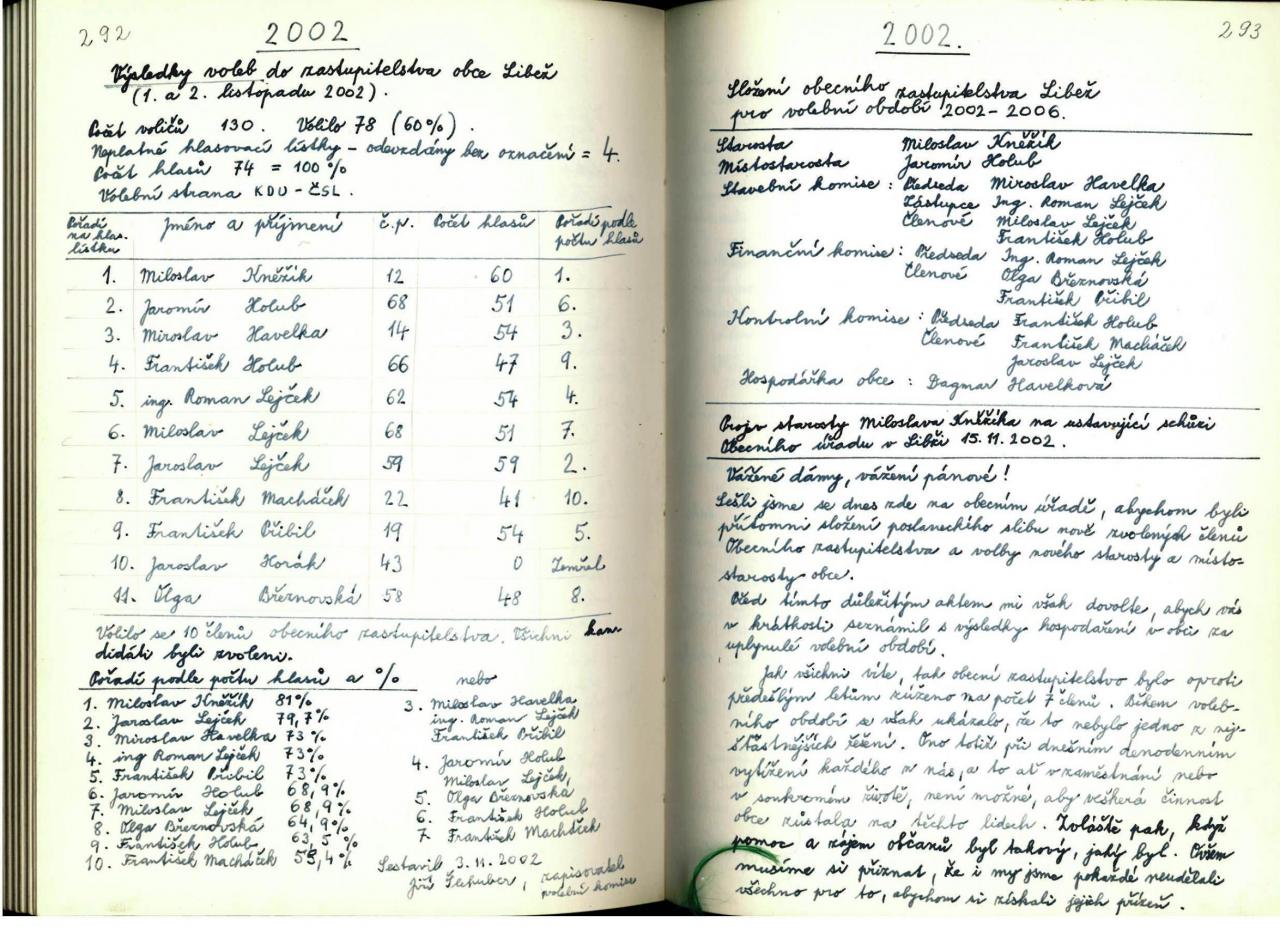 292
2002
Výsledky voleb do zastupitelstva obce Libež
(1. a 2. listopadu 2002).
Počet voličů 130. Volilo 78 (60%).
Neplatné hlasovací lístky – odevzdány bez označení = 4.
Počet hlasů 74 = 100 %
Volební strana KDU-ČSL.
Pořadí na hlas. lístku Jméno a příjmení č.p. Počet hlasů Pořadí podle počtu hlasů
1. Miloslav Kněžík 12 60 1.
2. Jaromír Holub 68 51 6.
3. Miroslav Havelka 14 54 3.
4. František Holub 66 47 9.
5. ing. Roman Lejček 62 54 4.
6. Miloslav Lejček 68 51 7.
7. Jaroslav Lejček 59 59 2.
8. František Macháček 22 41 10.
9. František Přibil 19 54 5.
10. Jaroslav Horák 43 0 Zemřel
11. Olga Březnovská 58 48 8.
Volilo se 10 členů obecního zastupitelstva. Všichni kan-
didáti byli zvoleni.
Pořadí podle počtu hlasů a %
1. Miloslav Kněžík 81%
2. Jaroslav Lejček 79,7%
3. Miroslav Havelka 73%
4. ing Roman Lejček 73%
5. František Přibil 73%
6. Jaromír Holub 68,9%
7. Miloslav Lejček 68,9%
8. Olga Březnovská 64,9%
9. František Holub 63,5%
10. František Macháček 55,4%
nebo
3. Miloslav Havelka
ing. Roman Lejček
František Přibil
4. Jaromír Holub
Miloslav Lejček,
5. Olga Březnovská
6. František Holub
7 František Macháček
Sestavil 3.11.2002
Jiří , zapisovatel
volební komise
293
2002.
Složení obecního zastupitelstva Libež
pro volební období 2002-2006.
Starosta Miloslav Kněžík
Místostarosta Jaromír Holub
Stavební komise: Předseda Miroslav Havelka
Zástupce Ing. Roman Lejček
Členové Miloslav Lejček
František Holub
Finanční komise: Předseda Ing. Roman Lejček
Členové Olga Březnovská
František Přibil
Kontrolní komise: Předseda František Holub
Členové František Macháček
Jaroslav Lejček
Hospodářka obce: Dagmar Havelková
Projev starosty Miloslava Kněžíka na ustavující schůzi
Obecního úřadu v Libži 15.11.2002.
Vážené dámy, vážení pánové!
Sešli jsme se dnes zde na obecním úřadě, abychom byli
přítomni složení poslaneckého slibu nově zvolených členů
Obecního zastupitelstva a volby nového starosty a místo-
starosty obce.
Před tímto důležitým aktem mi však dovolte, abych vás
v krátkosti seznámil s výsledky hospodaření v obci za
uplynulé volební období.
Jak všichni víte, tak obecní zastupitelstvo bylo oproti
předešlým letům zúženo na počet 7 členů. Během voleb-
ního období se však ukázalo, že to nebylo jedno z nej-
šťastnějších řešení. Ono totiž při dnešním denodenním
vytížení každého z nás, a to ať v zaměstnání nebo
v soukromém životě, není možné, aby veškerá činnost
obce zůstala na těchto lidech. Zvláště pak, když
pomoc a zájem občanů byl takový, jaký byl. Ovšem
musíme si přiznat, že i my jsme pokaždé neudělali
všechno pro to, abychom si získali jejich přízeň.